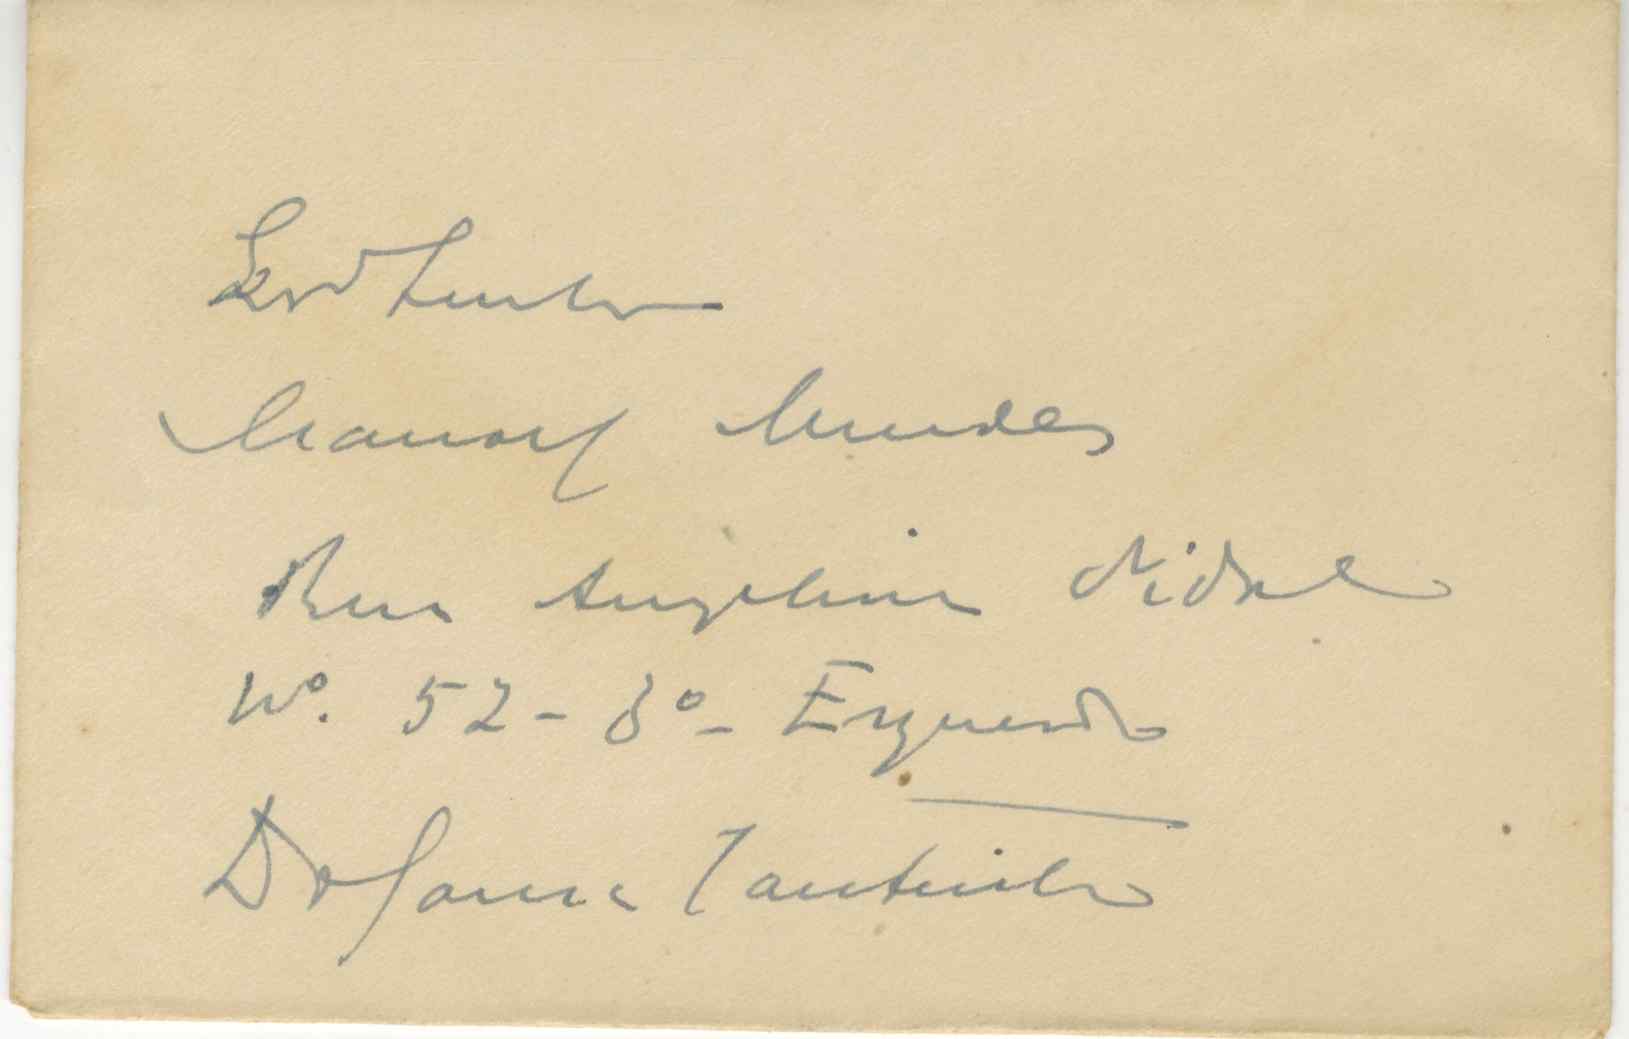 Exmo Senhor
Manoel Mendes
Rua Angelina Vidal
Nº. 52 - 3º - Esquerdo
De